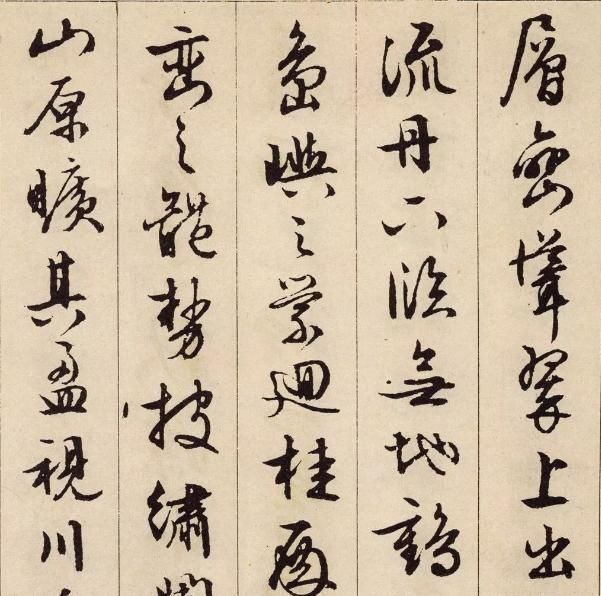 層巒聳翠上出
流丹下臨無地鶴
島嶼之縈廻桂殿
巒之體勢披繡
山原曠其盈視川